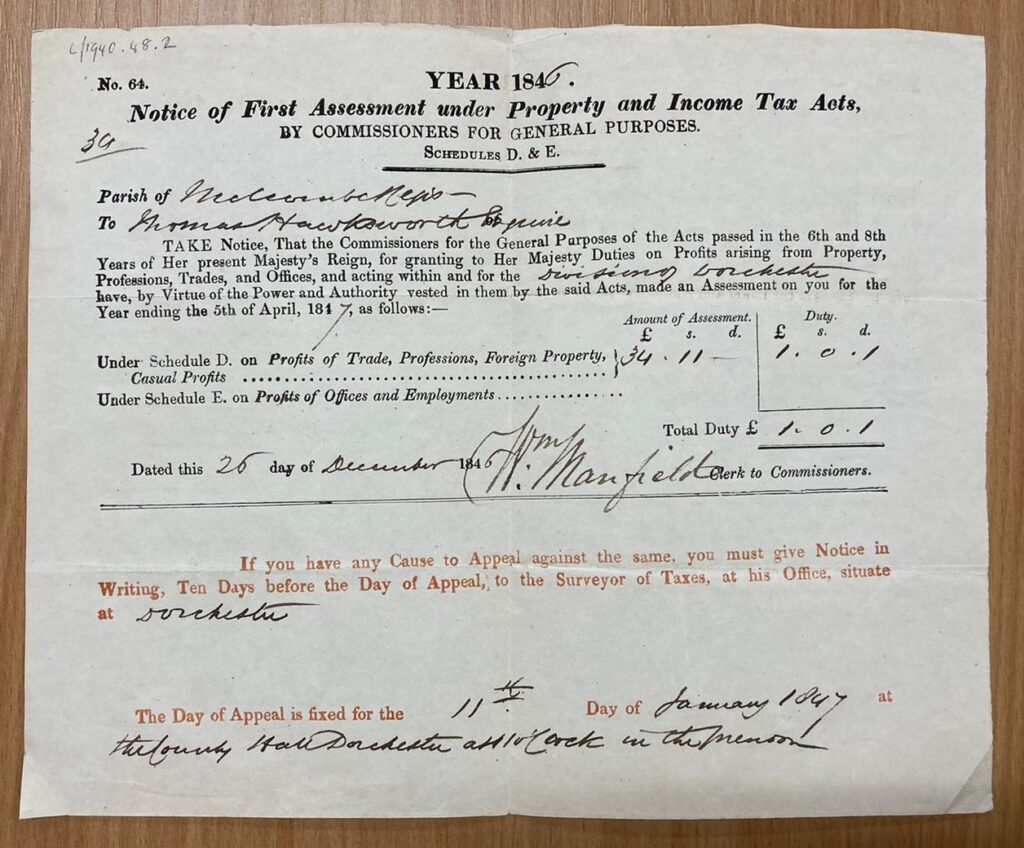 L/1940.48.2
No. 64.
YEAR 1846.
Notice of First Assessment under Property and Income Tax Acts,
39
BY COMMISSIONERS FOR GENERAL PURPOSES.
SCHEDULES D. & E.
Parish of Melcombe Regis
To Thomas Hawksworth Esquire
TAKE Notice, That the Commissioners for the General Purposes of the Acts passed in the 6th and 8th
Years of Her present Majesty's Reign, for granting to Her Majesty Duties on Profits arising from Property,
Professions, Trades, and Offices, and acting within and for the Division of Dorchester
have, by Virtue of the Power and Authority vested in them by the said Acts, made an Assessment on you for the
Year ending the 5th of April, 1847, as follows:—
Amount of Assessment. Duty.
£ s. d. £ s. d.
Under Schedule D. on Profits of Trade, Professions, Foreign Property, } 34 . 11 — 1 . 0 . 1
Casual Profits
Under Schedule E. on Profits of Offices and Employments
Total Duty £ 1 . 0 . 1
Dated this 26 day of December 1846 Wm W. Manfield Clerk to Commissioners.
If you have any Cause to Appeal against the same, you must give Notice in
Writing, Ten Days before the Day of Appeal, to the Surveyor of Taxes, at his Office, situate
at Dorchester
The Day of Appeal is fixed for the 11th Day of January 1847 at
the County Hall Dorchester at 11 o'Clock in the forenoon